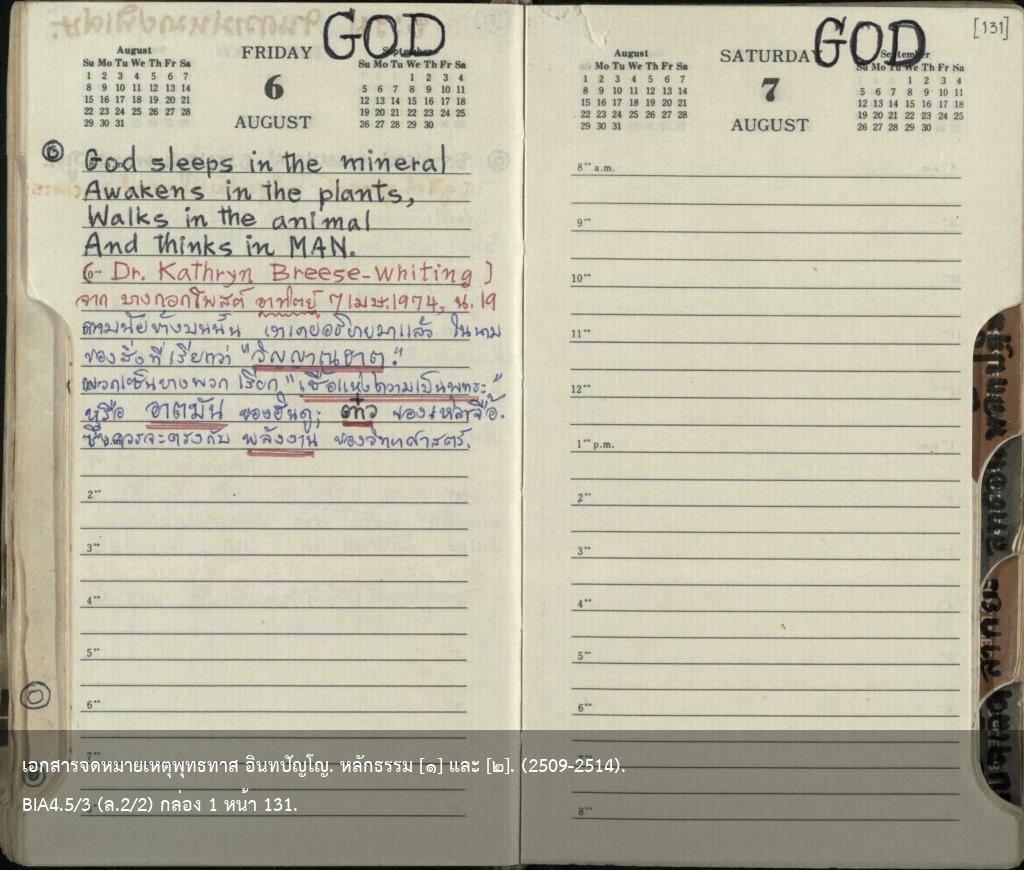 GOD
August
FRIDAY
September
Su Mo Tu We Th Fr Sa
6
1 2 3 4 5 6 7
8 9 10 11 12 13 14
15 16 17 18 19 20 21
22 23 24 25 26 27 28
29 30 31
AUGUST
Su Mo Tu We Th Fr Sa
1 2 3 4
5 6 7 8 9 10 11
12 13 14 15 16 17 18
19 20 21 22 23 24 25
26 27 28 29 30
God sleeps in the mineral
Awakens in the plants,
Walks in the animal
And thinks in MAN.
( Dr. Kathryn Breese-Whiting )
จาก บางกอกโพสต์ อาทิตย์ 7 เมษ.1974, น. 19
ตามนัยข้างบนนั้น เราเคยอธิบายมาแล้ว ในนาม
ของสิ่งที่เรียกว่า "วิญญาณธาตุ."
พวกเซ็นบางพวก เรียก "เชื้อแห่งความเป็นพุทธะ"
หรือ อาตมัน ของฮินดู; เต๋า ของเหลาจื๊อ.
ซึ่งควรจะตรงกับ พลังงาน ของวิทยาศาสตร์.
2
3
4
5
6
7
[131]
GOD
August
SATURDAY
September
Mo Tu We Th Fr Sa
7
1 2 3 4 5 6 7
8 9 10 11 12 13 14
15 16 17 18 19 20 21
22 23 24 25 26 27 28
29 30 31
AUGUST
Su Mo Tu We Th Fr Sa
1 2 3 4
5 6 7 8 9 10 11
12 13 14 15 16 17 18
19 20 21 22 23 24 25
26 27 28 29 30
8 a.m.
9
10
11
12
1 p.m.
2
3
4
5
6
7
8
เอกสารจดหมายเหตุพุทธทาส อินทปัญโญ. หลักธรรม [๑] และ [๒]. (2509-2514).
BIA4.5/3 (ล.2/2) กล่อง 1 หน้า 131.